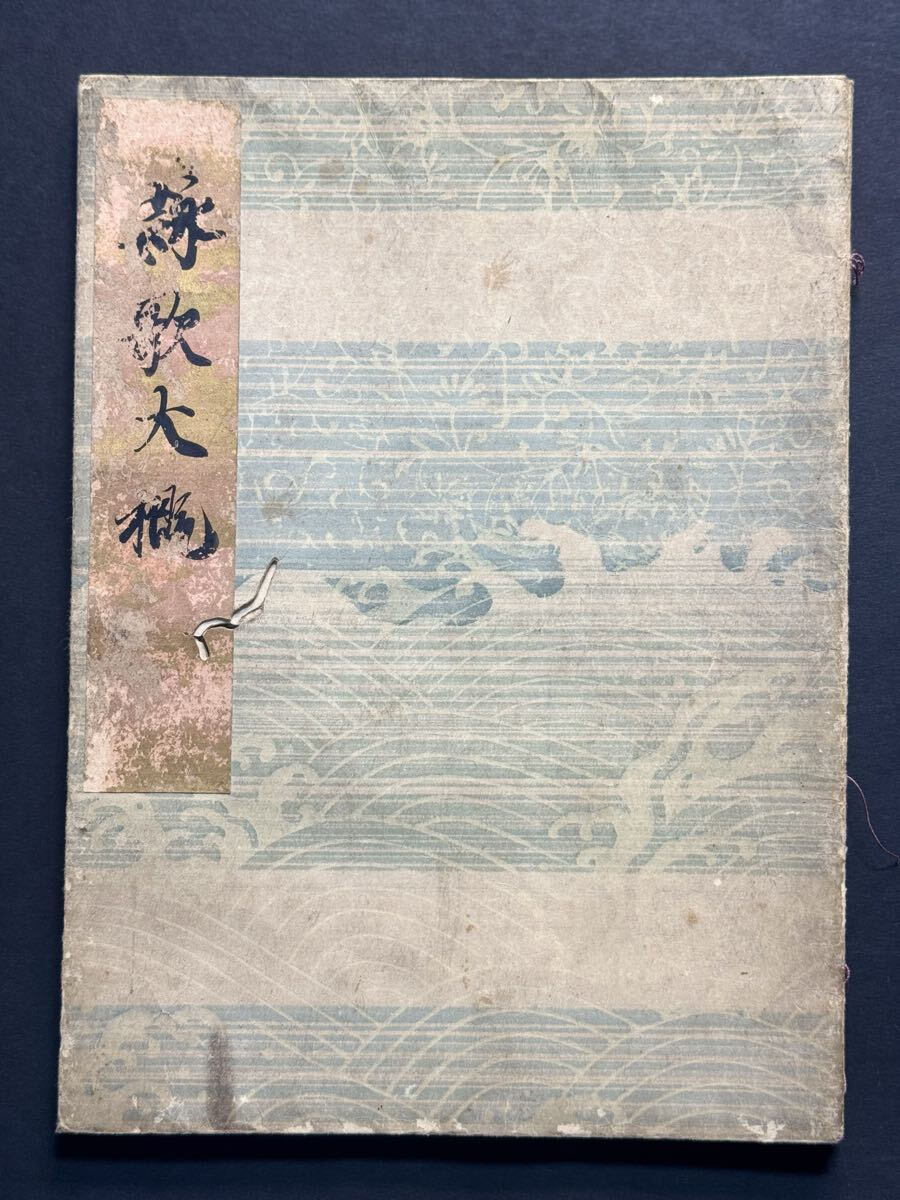 詠歌大概